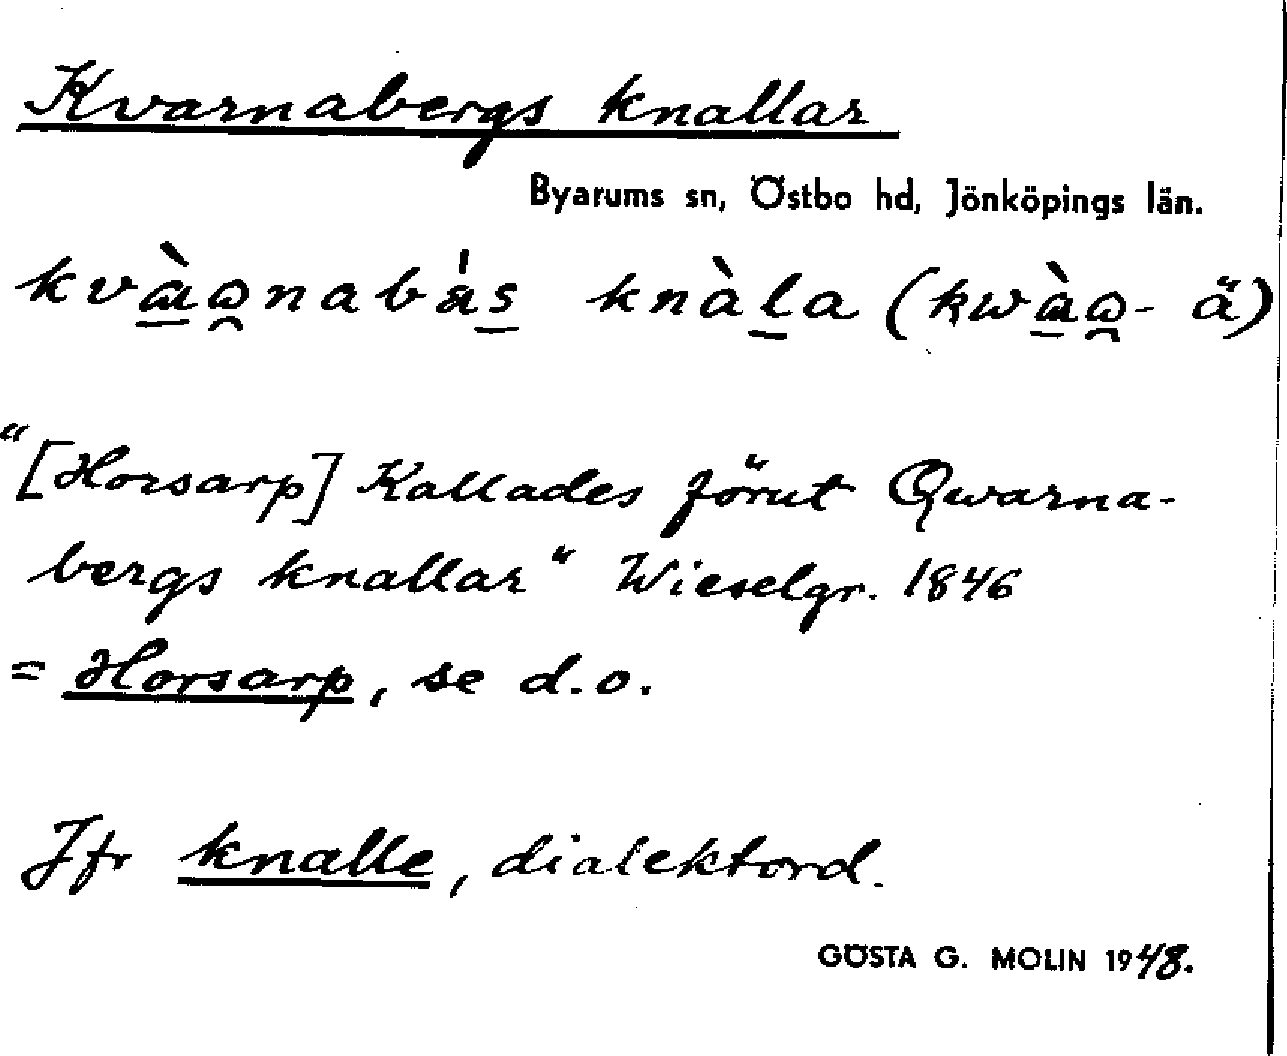 Kvarnabergs knallar
Byarums sn, Östbo hd, Jönköpings län.
kvàꞷnabás knàla (kwàꞷ- ä)
"[Horsarp] Kallades förut Qwarna-
bergs knallar" Wieselgr. 1846
= Horsarp, se d.o.
Jfr knalle, dialektord.
GÖSTA G. MOLIN 1948.